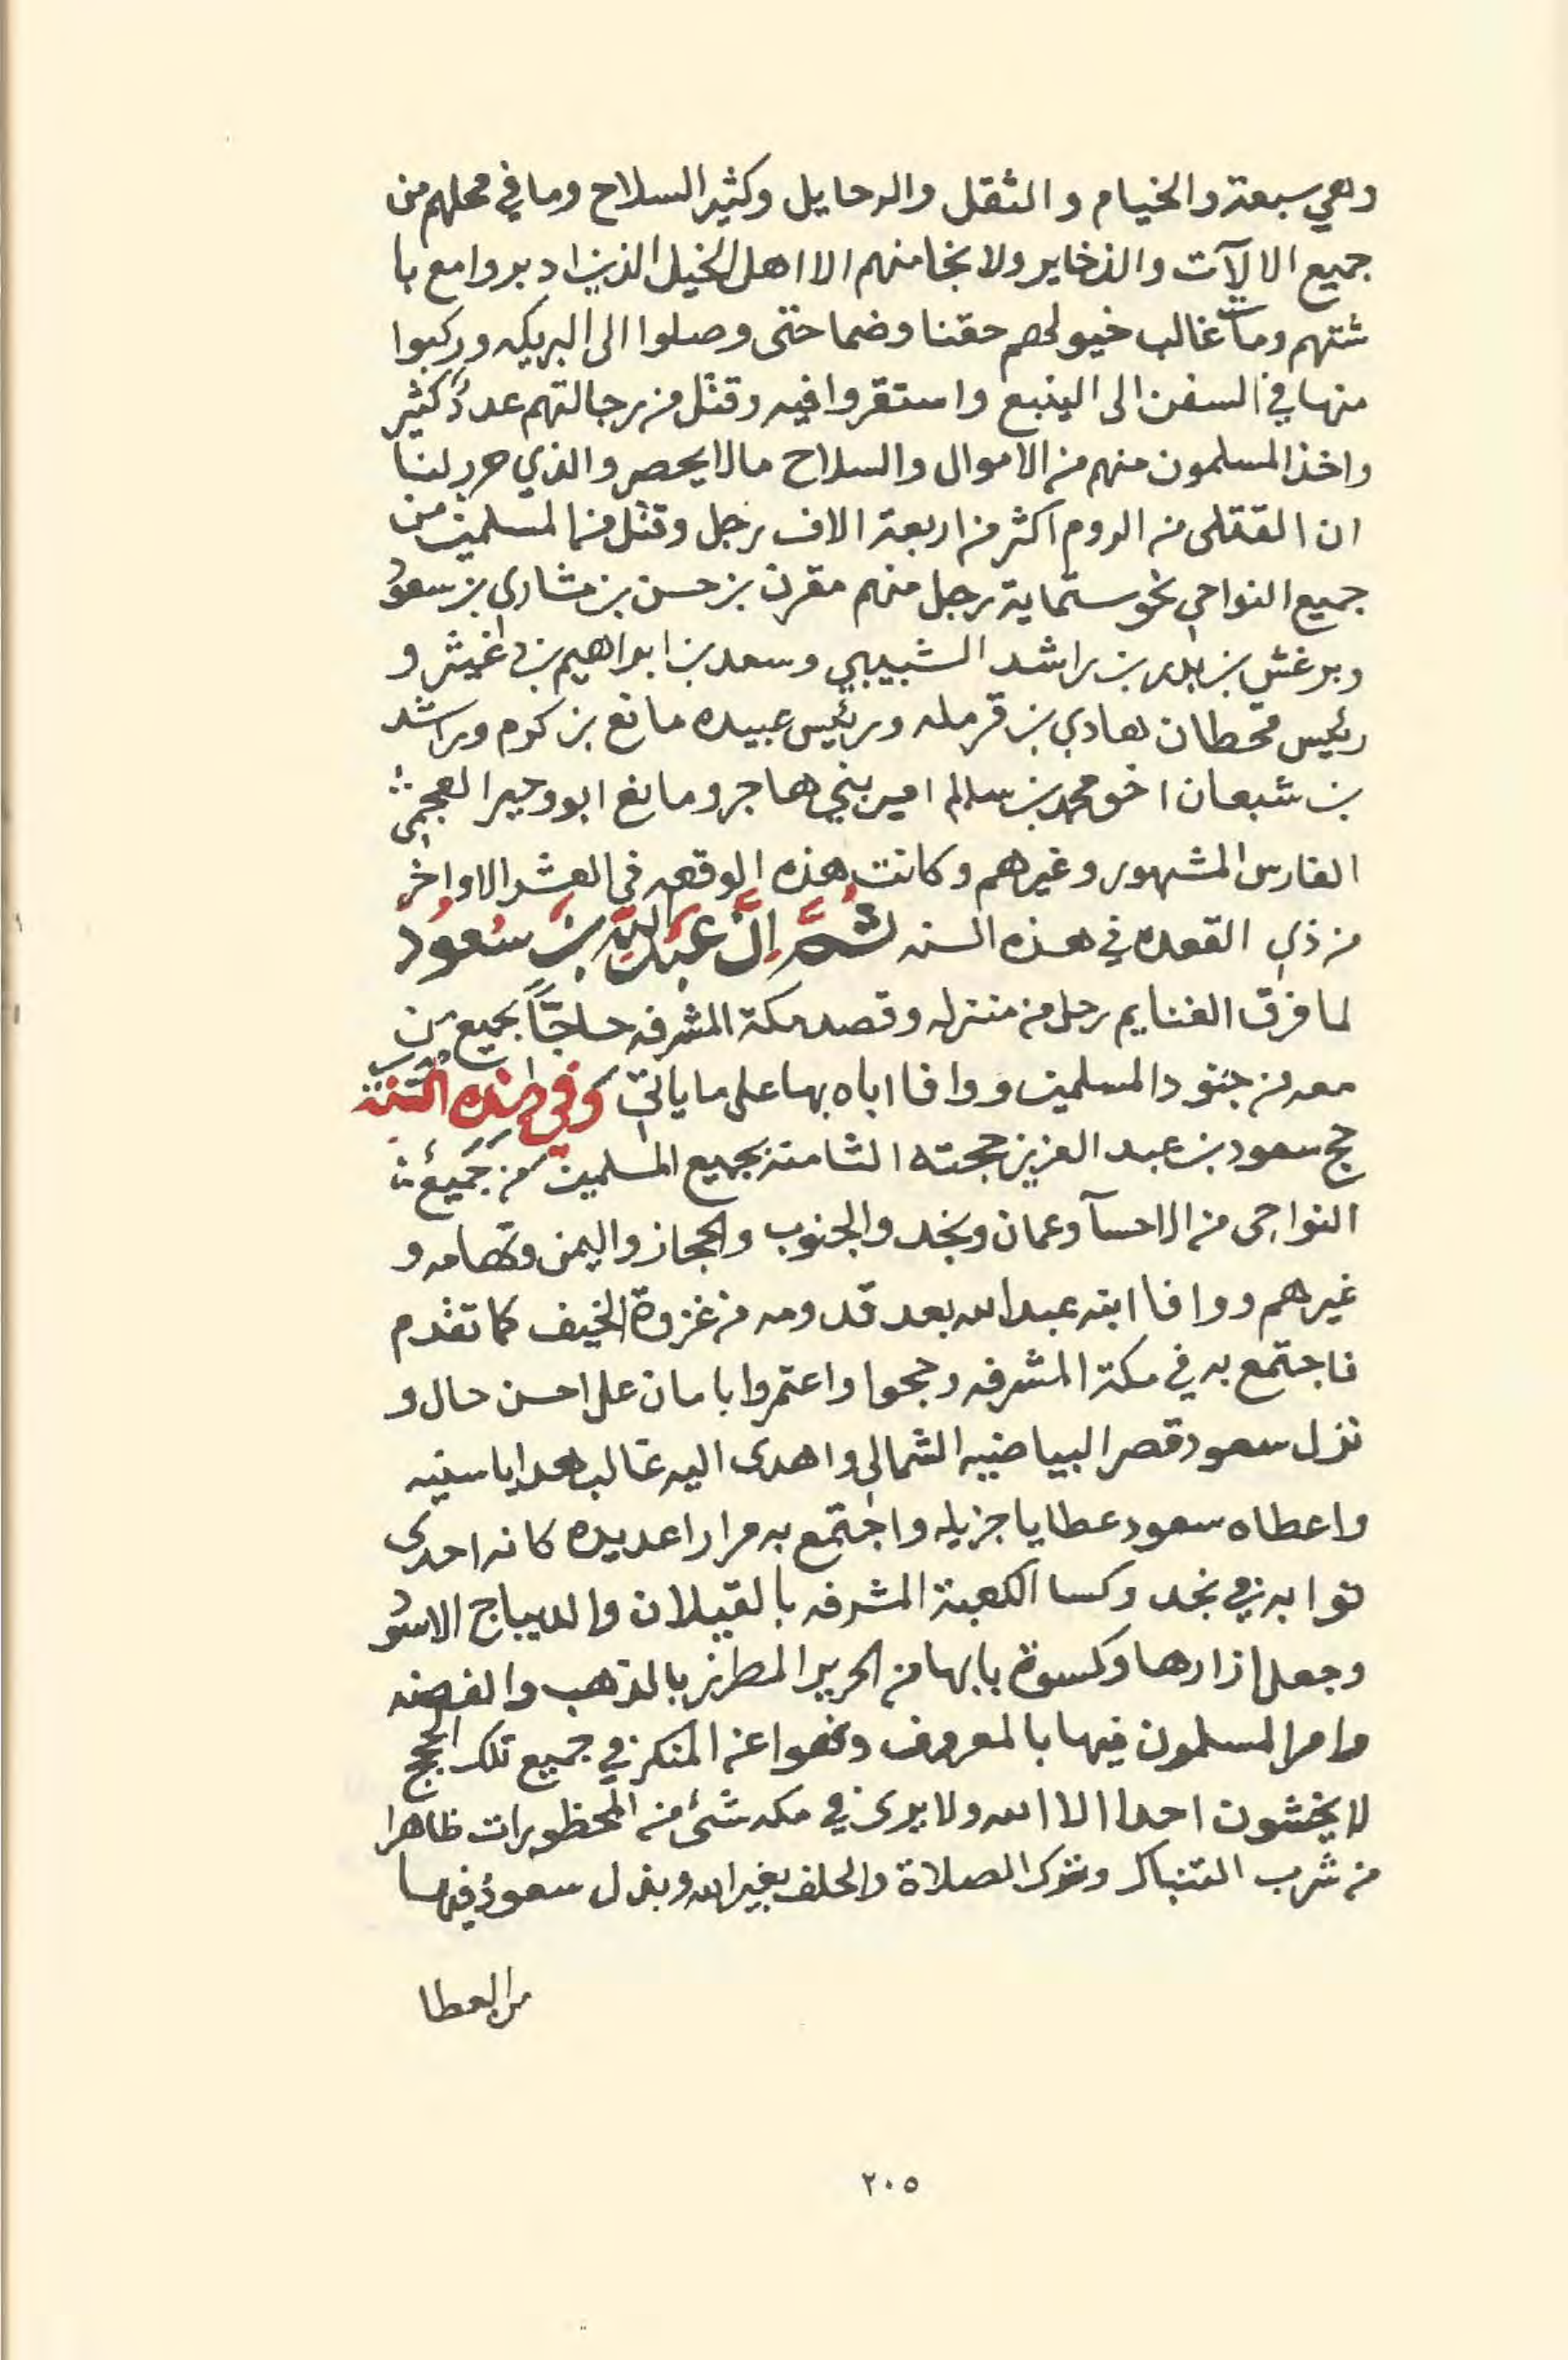 وهي سبعة والخيام والثقل والرحايل وكثير السلاح وما في محلهم من
جميع الالآت والذخاير ولا نجا منهم الا اهل الخيل الذين ادبروا مع با
شتهم ومات غالب خيولهم حقنا وضما حتى وصلوا الى البريكه وركبوا
منها في السفن الى الينبع واستقروا فيه وقتل من رجالتهم عددٌ كثير
واخذ المسلمون منهم من الاموال والسلاح ما لا يحصر والذي حرر لنا
ان القتلى من الروم اكثر من اربعة الاف رجل وقتل من المسلمين من
جميع النواحي نحو ستماية رجل منهم مقرن بن حسن بن مشاري بن سعود
وبرغش بن بدر بن راشد الشبيبي وسعد بن ابراهيم بن دغيثر و
رئيس قحطان هادي بن قرمله ورئيس عبيده مانع بن كرم وراشد
بن شبعان اخو محمد بن سالم امير بني هاجر ومانع ابو وحير العجمي
الفارس المشهور وغيرهم وكانت هذه الوقعه في العشر الاواخر
من ذي القعده في هذه السنه ثُمَّ اِنَّ عَبدَ اللهِ بنَ سُعُودْ
لما فرق الغنايم رحل من منزله وقصد مكة المشرفه حاجّاً بجميع من
معه من جنود المسلمين ووافا اباه بها على ما ياتي وَفي هٰذه السَّنة
حج سعود بن عبد العزيز حجته الثامنة بجميع المسلمين من جَمَيع
النواحي من الاحسآ وعمان ونجد والجنوب والحجاز واليمن وتهامه و
غيرهم ووافا ابنه عبدالله بعد قدومه من غزوة الخيف كما تقدم
فاجتمع به في مكة المشرفه وحجوا واعتمروا بامان على احسن حال و
نزل سعود قصر البياضيه الشمالي واهدى اليه غالب هدايا سنيه
واعطاه سعود عطايا جزيله واجتمع به مرارا عديده كانه احدى
نوابه في نجد وكسا الكعبة المشرفه بالقيلان والديباج الاسود
وجعل ازارها وكسوة بابها من الحرير المطرز بالذهب والفضه
وامر المسلمون فيها بالمعروف ونهوا عن المنكر في جميع تلك الحجج
لا يخشون احدا الا الله ولا يرى في مكه شئ من المحظورات ظاهرا
من شرب التنباك وترك الصلاة والحلف بغير الله وبذل سعود فيها
من العطا
٢٠٥